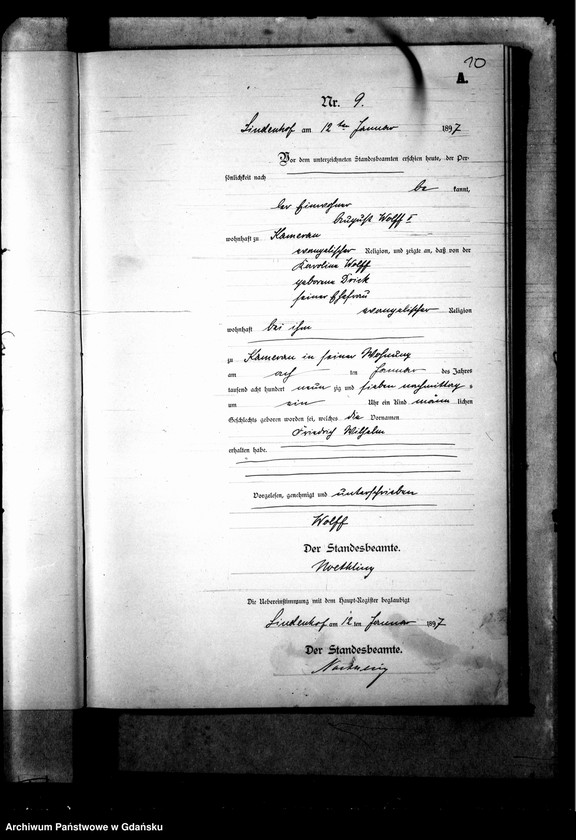 10
A.
Nr. 9.
Lindenhof am 12 ten Januar 1897
Vor dem unterzeichneten Standesbeamten erschien heute, der Per-
sönlichkeit nach
be kannt,
der Einwohner
August Wolff I
wohnhaft zu Kamerau
evangelischer Religion, und zeigte an, daß von der
Karoline Wolff
geborene
seiner Ehefrau
evangelischer Religion
wohnhaft bei ihm
zu Kamerau in seiner Wohnung
am ach ten Januar des Jahres
tausend acht hundert neun zig und sieben nachmittag s
um ein Uhr ein Kind männ lichen
Geschlechts geboren worden sei, welches die Vornamen
Friedrich Wilhelm
erhalten habe.
Vorgelesen, genehmigt und unterschrieben
Wolff
Der Standesbeamte.
Die Uebereinstimmung mit dem Haupt-Register beglaubigt
Lindenhof am 12 ten Januar 1897
Der Standesbeamte.
Archiwum Państwowe w Gdańsku